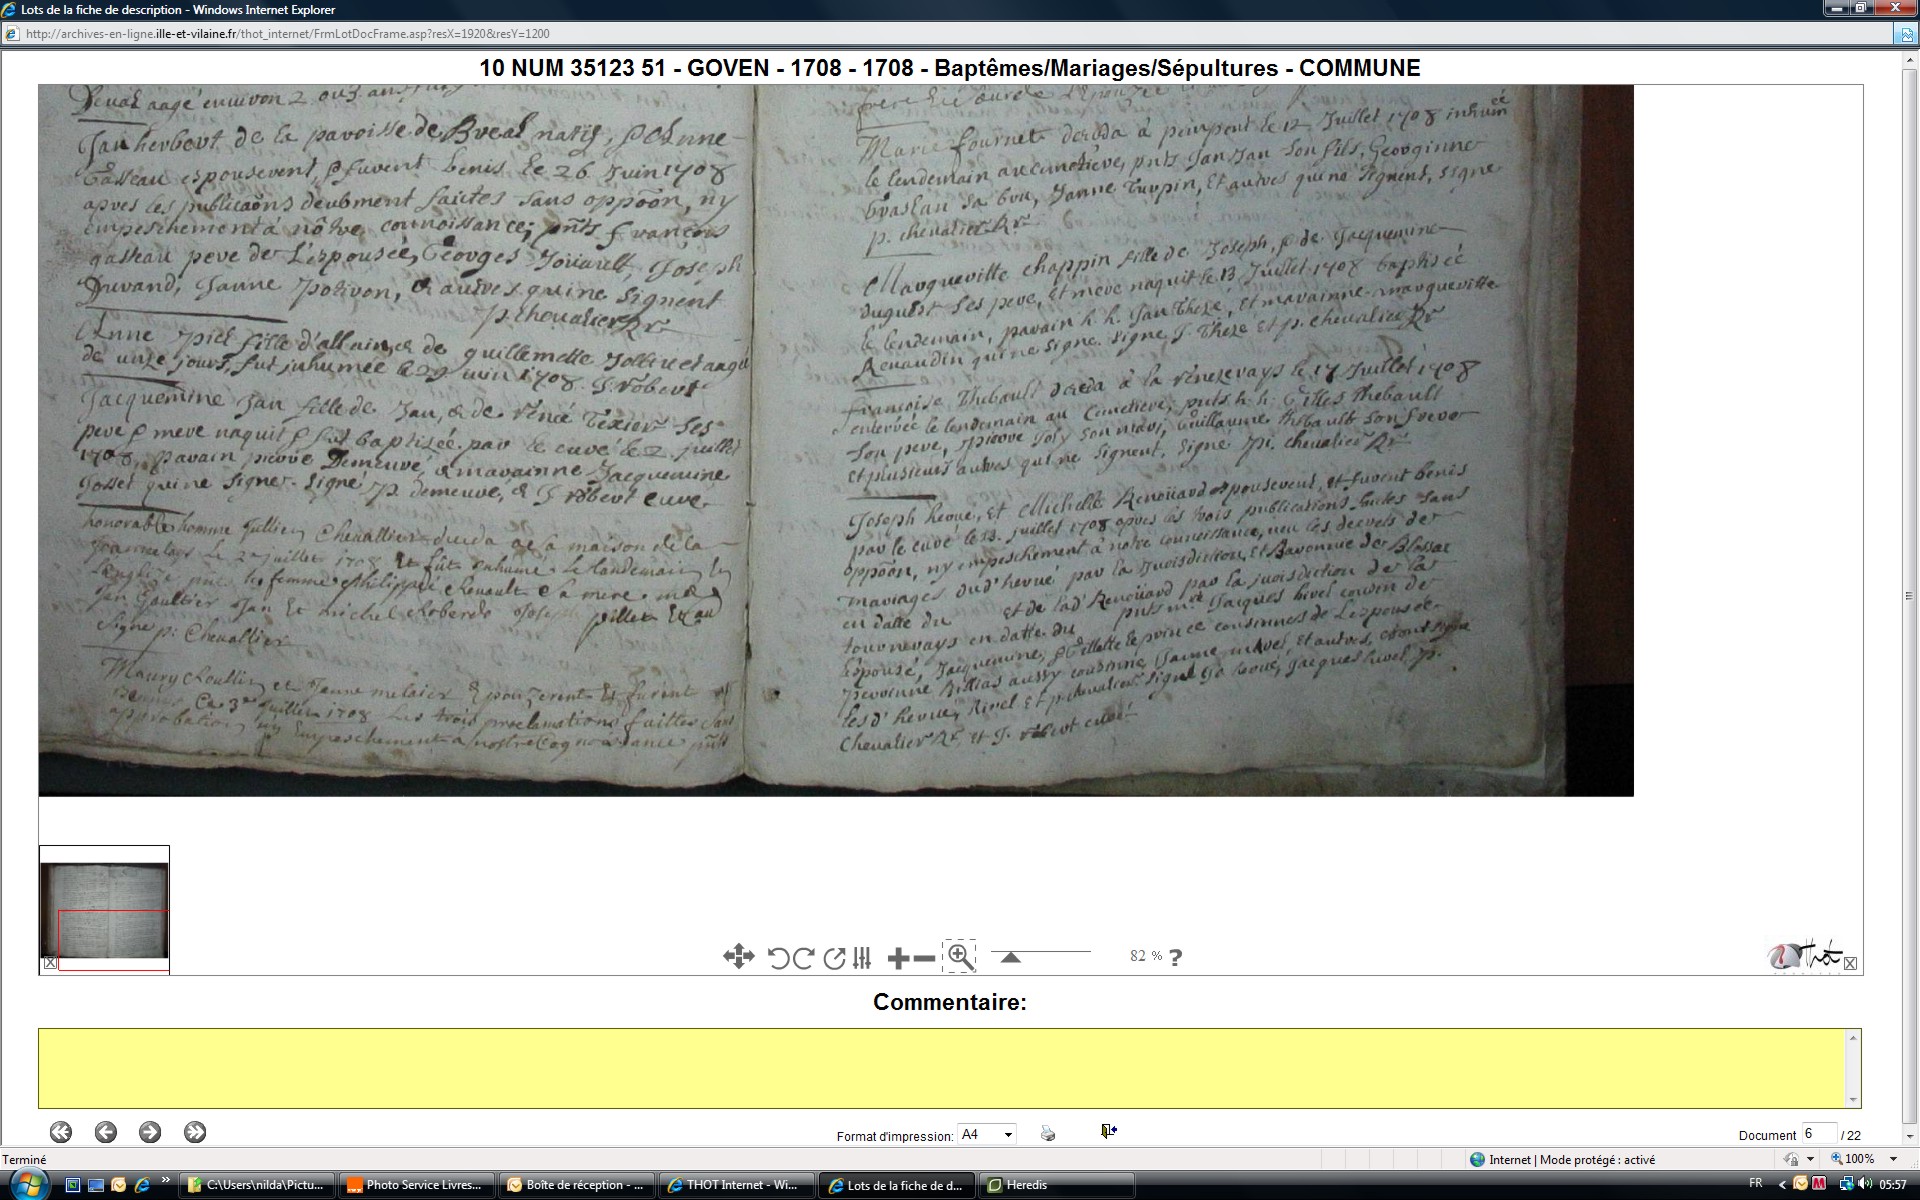 Lots de la fiche de description - Windows Internet Explorer
http://archives-en-ligne.ille-et-vilaine.fr/thot_internet/FrmLotDocFrame.asp?resX=1920&resY=1200
10 NUM 35123 51 - GOVEN - 1708 - 1708 - Baptêmes/Mariages/Sépultures - COMMUNE
aagé environ 2 ou 3 ans
Jan herbert de la paroisse de Breal natif, & Anne
Gasteau espouserent, & furent benis le 26 Juin 1708
apres les publicaõns deubment faictes sans oppõon, ny
empeschement à nôtre connoissance; pnts françois
gasteau pere de l'espousée, Georges Joüault, Joseph
Durand, Janne potiron, & autres qui ne signent
p. chevalier Rr
Anne piel fille d'allain, & de guillemette aagée
de unze jours, fut inhumée le 29 juin 1708. J. robert
Jacquemine Jan fille de Jan, & de renée Texier ses
pere & mere naquit & fut baptisée par le curé le 2 juillet
1708, parain pierre Demeuré, & marainne Jacquemine
Josset qui ne signe. signé p. demeuré, & J. robert curé
honorable homme Jullien Chevallier deceda a la maison de la
le 2e juillet 1708 et fut inhumé le landemain
pnts sa femme philippe chenault sa mere
Jan Gaultier Jan et michel Joseph pillet et au
signe p: Chevallier
Maury et Janne epouzerent et furent
benis ce 3e juillet 1708 les trois proclamations faittes sans
approbation ny empeschement a nostre cognoissance pnts
Marie fournet deceda à le 12 Juillet 1708 inhumée
le lendemain au cimetiere, pnts Jan Jan son fils, Georginne
sa bru, Janne Turpin, et autres qui ne signent, signe
p. chevalier Rr
Margueritte chappin fille de Joseph, & de Jacquemine
duguest ses pere, et mere naquit le 13 Juillet 1708 baptisée
le lendemain, parain h. h. Jan Theze, et marainne margueritte
Renaudin qui ne signe. signé J. Theze et p. chevalier Rr
françoise Thebault deceda à la le 17 Juillet 1708
enterrée le lendemain au Cimetiere, pnts h. h. Gilles Thebault
son pere, pierre Joly son mari, Guillaume thebault son frere
et plusieurs autres qui ne signent. signé p. chevalier Rr
Joseph herué, et Michelle Renoüard espouserent, et furent benis
par le curé le juillet 1708 apres les trois publications faictes sans
oppõon, ny empeschement à notre connoissance, veu les decrets de
mariages dud' herué par la Jurisdiction et Baronnie de Blossac
en datte du et de lad' Renoüard par la jurisdiction de la
tournerays en datte du pnts mre Jacques hivel cousin de
l'espousé, Jacquemine, & Gillette le prince cousinnes de l'espousée
perrinne Billias aussy cousinne, Janne mivel, et autres, et ont signé
lesd' herué, hivel et p. chevalier. signé Jo herué, Jacques hivel, p.
Chevalier Rr, et J. robert curé
82 % ?
Thot
Commentaire:
Format d'impression: A4
Document 6 / 22
Terminé
Internet | Mode protégé : activé
100%
C:\Users\nilda\Pictu...
Photo Service Livres...
Boîte de réception - ...
THOT Internet - Wi...
Lots de la fiche de d...
Heredis
FR
05:57